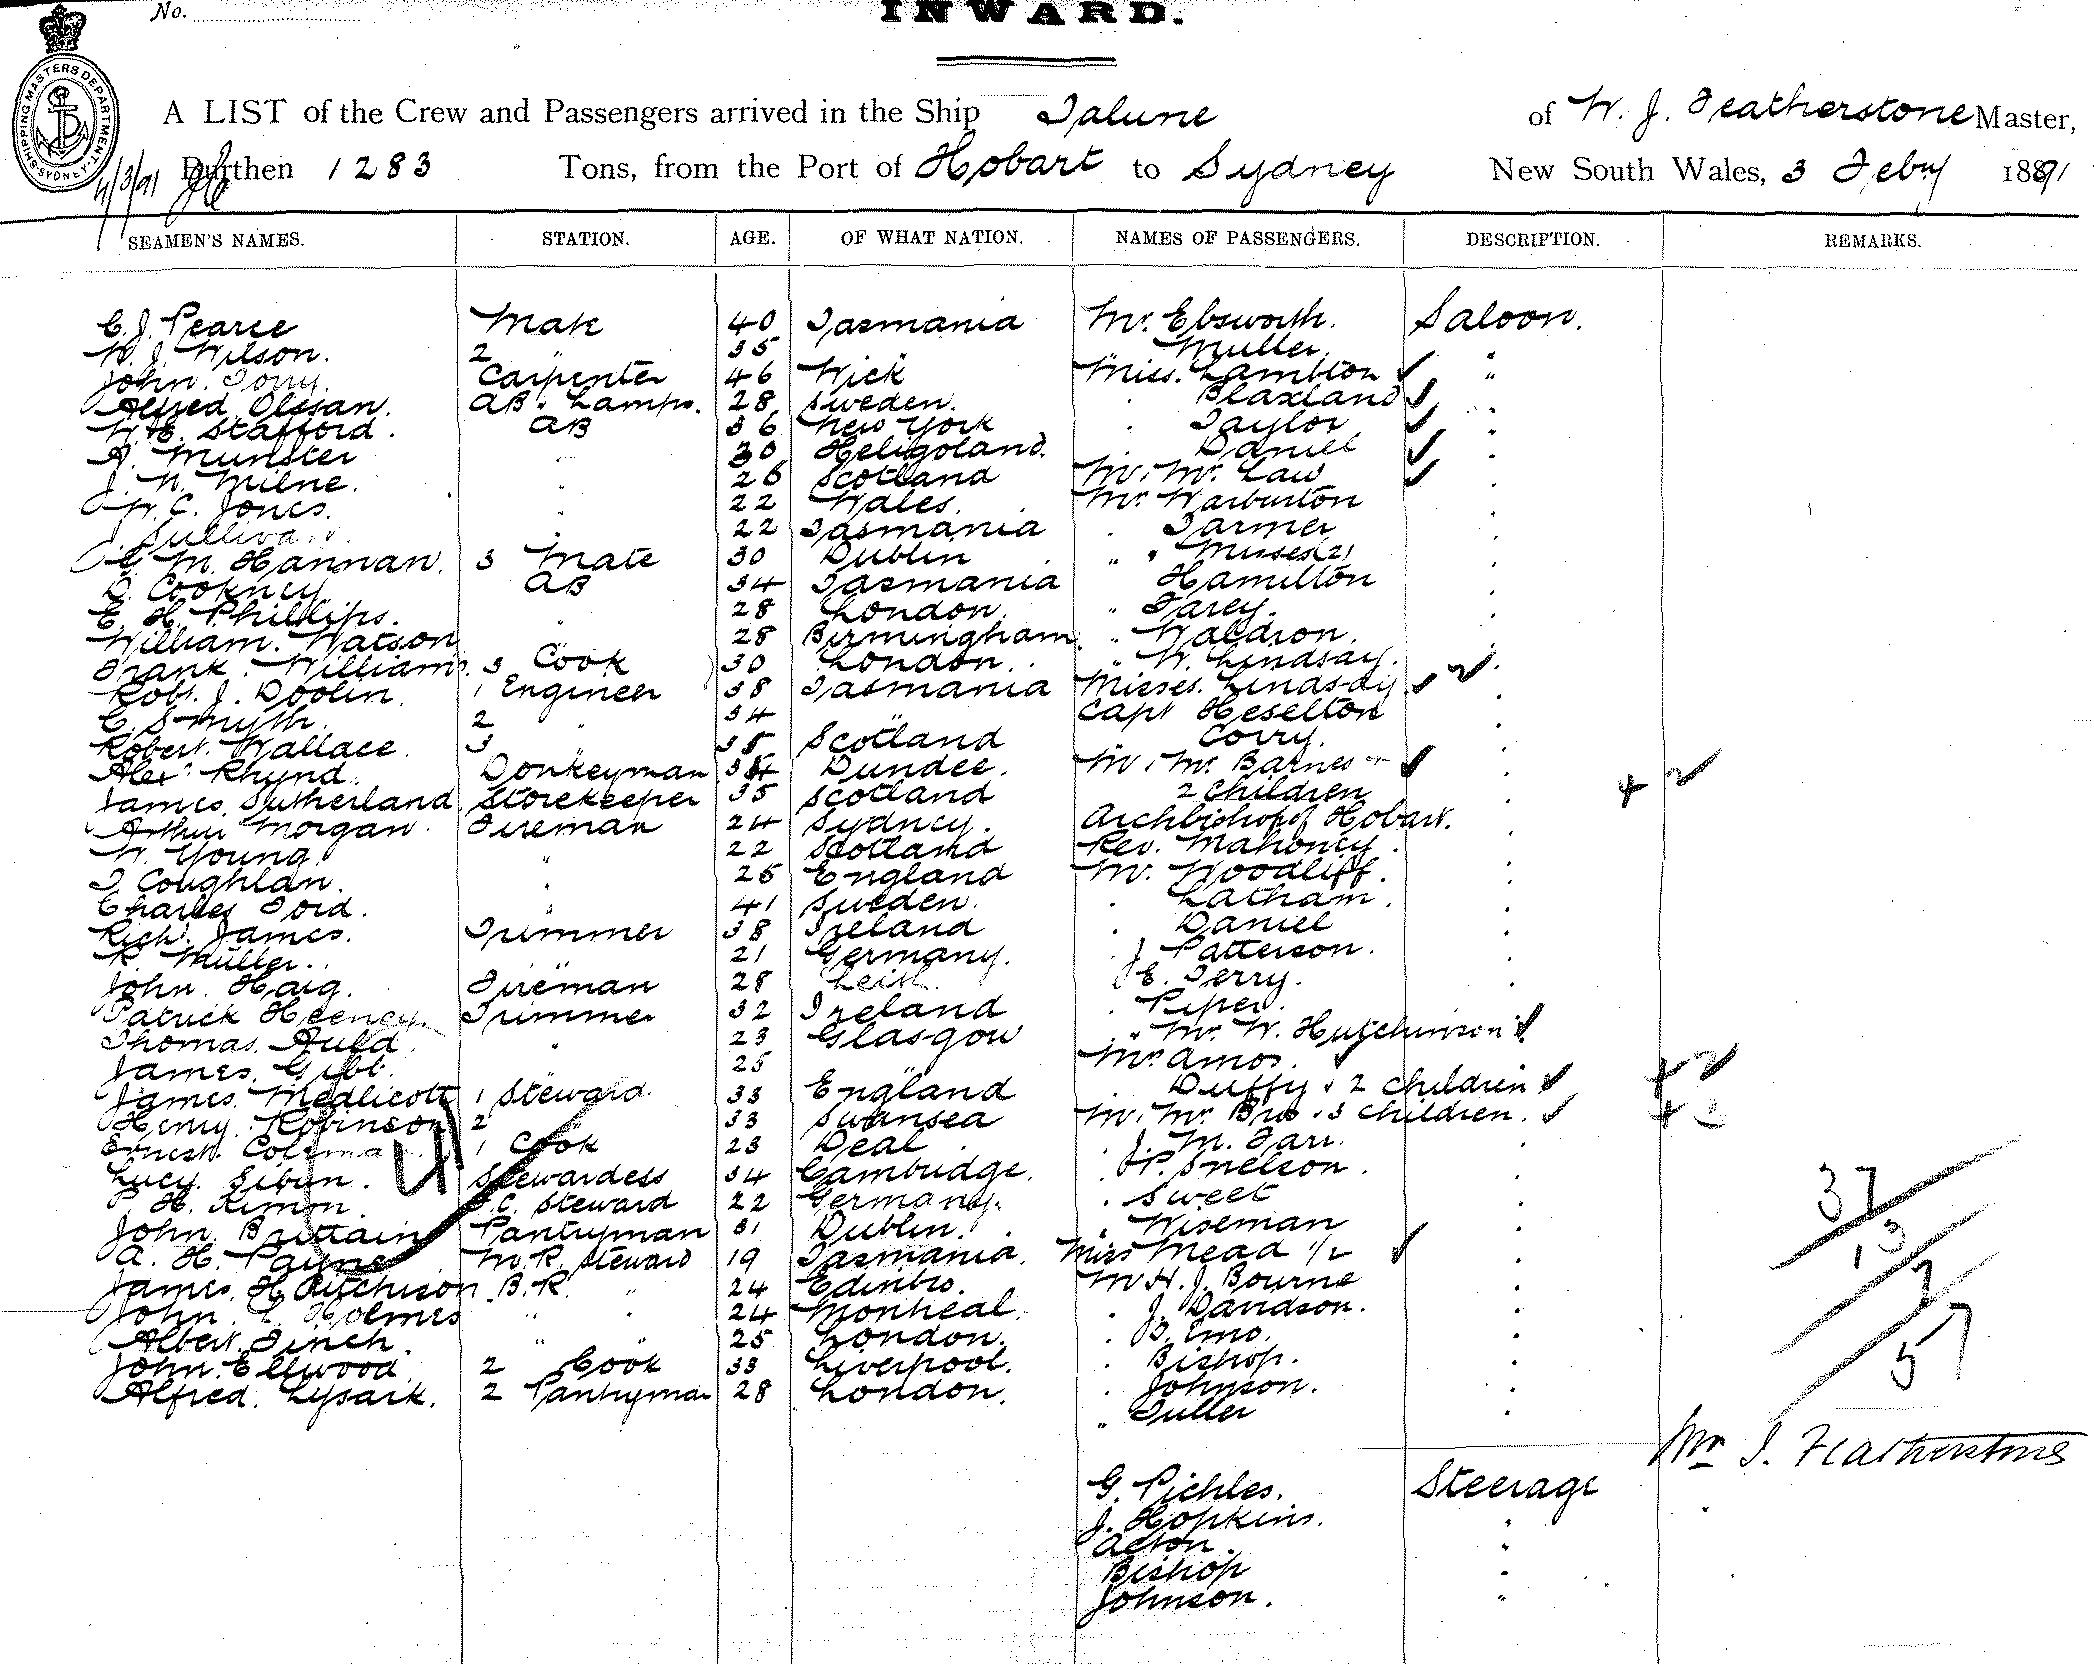 No.
INWARD.
SHIPPING MASTERS DEPARTMENT. SYDNEY.
A LIST of the Crew and Passengers arrived in the Ship Talune of W. J. Featherstone Master,
4/3/91 Burthen 1283 Tons, from the Port of Hobart to Sydney New South Wales, 3 Feby 1891
SEAMEN'S NAMES. STATION. AGE. OF WHAT NATION. NAMES OF PASSENGERS. DESCRIPTION. REMARKS.
C. J. Pearce Mate 40 Tasmania Mr. Ebsworth. Saloon.
W. J. Wilson. 2 " 35 " Muller "
John. Torry. Carpenter 46 Wick Miss. Lambton "
Alfred Olssan. AB. Lamps. 28 Sweden. Blaxland "
W. E. Stafford. AB 36 New York Taylor "
A. Munster " 30 Heligoland. Daniel "
J. W. Milne. " 26 Scotland Mr. Mrs. Law "
W. C. Jones. " 22 Wales. Mr. Warburton "
J. Sullivan. " 22 Tasmania Farmer "
M. Hannan. 3 Mate 30 Dublin " " Misses (2) "
D. Cockney AB 34 Tasmania Hamilton "
E. H. Phillips. " 28 London. " Farey. "
William. Watson 28 Birmingham " Waldron. "
Frank. Williams. 3 Cook 30 London. " W. Lindsay. "
Robt. J. Doolin. 1 Engineer 38 Tasmania Misses. Lindsay 2 "
C. Smyth. 2 " 34 " Capt Heselton "
Robert. Wallace. 3 35 Scotland Corry. "
Alexr Rhynd. Donkeyman 34 Dundee. Mr. Mrs. Barnes "
James. Sutherland Storekeeper 35 Scotland 2 Children + 2
Arthur Morgan. Fireman 24 Sydney. Archbishop of Hobart.
W. Young. " 22 Scotland Rev. Mahoney.
T. Coughlan. " 26 England Mr. Woodliff.
Charles Ford. " 41 Sweden. Latham.
Rich. James. Trimmer 38 Ireland Daniel
R. Müller. " 21 Germany. J. Patterson.
John. Haig. Fireman 28 Leith. E. Terry.
Patrick Heeney. Trimmer 32 Ireland Piper.
Thomas. Auld. " 23 Glasgow " Mrs. W. Hutchinson
James. Gibb. 25 " Mrs. Amos.
James. Medlicott 1 Steward. 33 England Duffy & 2 Children + 2
Henry. Robinson 2 " 33 Swansea Mr. Mrs. 3 Children. +
Ernest. Coleman 1 Cook 23 Deal J. M. Tarr.
Lucy. Sibun. Stewardess 34 Cambridge. P. Snelson.
H. Kimon. F.C. Steward 22 Germany. Sweet
John. Brittain Pantryman 31 Dublin. Wiseman
A. H. Payne M.R. Steward 19 Tasmania. Miss Mead 1/2
James. H Aitchison B.R. " 24 Edinbro. Mr H. J. Bourne
John. Holmes " " 24 Montreal. J. Davidson.
Albert. Finch. " " 25 London. B.
John. Ellwood 2 Cook 33 Liverpool. Bishop.
Alfred. Lysark. 2 Pantryman 28 London. Johnson.
" Fuller
37
13
7
57
Wm J. Featherstone
G. Pichles. Steerage
J. Hopkins. "
Acton. "
Bishop "
Johnson. "